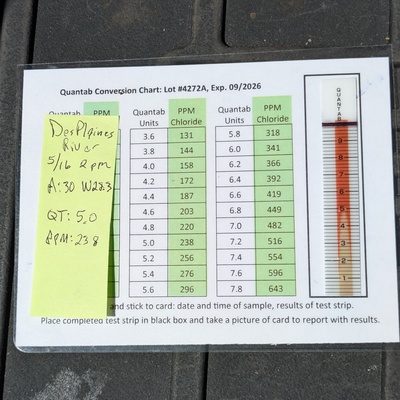 Quantab Conversion Chart: Lot #4272A, Exp. 09/2026
Quantab PPM Quantab Units PPM Chloride Quantab Units PPM Chloride
3.6 131 5.8 318
3.8 144 6.0 341
4.0 158 6.2 366
4.2 172 6.4 392
4.4 187 6.6 419
4.6 203 6.8 449
4.8 220 7.0 482
5.0 238 7.2 516
5.2 256 7.4 554
5.4 276 7.6 596
5.6 296 7.8 643
DesPlaines
River
5/16 2 pm
A:30 W22.3
QT: 5.0
PPM: 238
QUANTAB
9
8
7
6
5
4
3
2
1
and stick to card: date and time of sample, results of test strip.
Place completed test strip in black box and take a picture of card to report with results.